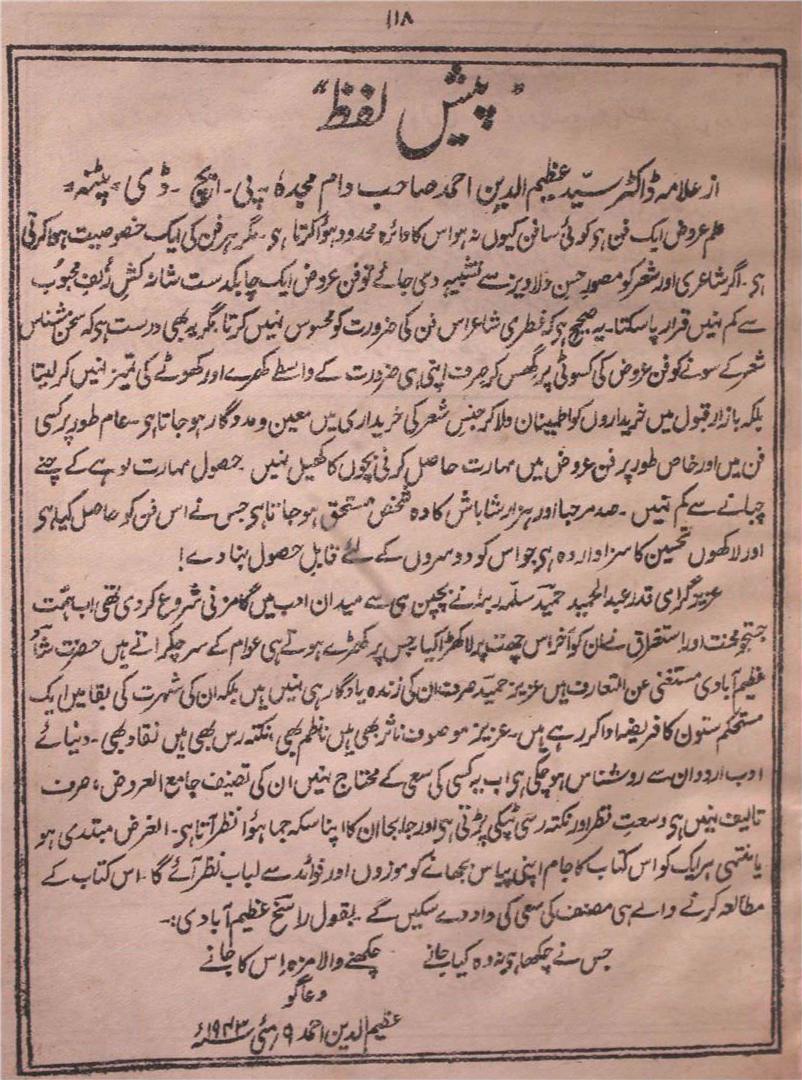 ۱۱۸
"پیش لفظ"
از علامہ ڈاکٹر سیّد عظیم الدین احمد صاحب دام مجدہٗ پی۔ ایچ۔ ڈی۔ پٹنہ۔
علم عروض ایک فن ہی کوئی سا فن کیوں نہ ہو اس کا دائرہ محدود ہوا کرتا ہی۔ مگر ہر فن کی ایک خصوصیت ہوا کرتی
ہی۔ اگر شاعری اور شعر کو مصور حسن دلاویز سے تشبیہ دی جائے تو فن عروض ایک چابکدست شانہ کش زلف محبوب
سے کم نہیں قرار پا سکتا۔ یہ صحیح ہی کہ فطری شاعر اس فن کی ضرورت کو محسوس نہیں کرتا مگر یہ بھی درست ہی کہ سخن شناس
شعر کے سونے کو فن عروض کی کسوٹی پر گھس کر صرف اپنی ہی ضرورت کے واسطے کھرے اور کھوٹے کی تمیز نہیں کر لیتا
بلکہ بازار قبول میں خریداروں کو اطمینان دلا کر جنس شعر کی خریداری میں معین و مددگار ہو جاتا ہی۔ عام طور پر کسی
فن میں اور خاص طور پر فن عروض میں مہارت حاصل کرنی بچوں کا کھیل نہیں حصول مہارت لوہے کے چنے
چبانے سے کم نہیں۔ صد مرحبا اور ہزار شاباش کا وہ شخص مستحق ہو جاتا ہی جس نے اس فن کو حاصل کیا ہی
اور لاکھوں تحسین کا سزاوار وہ ہی جو اس کو دوسروں کے لئے قابل حصول بنا دے!
عزیز گرامی قدر عبدالحمید حمیدؔ سلّمہ ربہ نے بچپن ہی سے میدان ادب میں گامزنی شروع کر دی تھی اب ہمت
جستجو محنت اور استغراق نے ان کو آخر اس چھت پر لا کھڑا کیا جس پر کھڑے ہوتے ہی عوام کے سر چکراتے ہیں حضرت شادؔ
عظیم آبادی مستغنی عن التعارف ہیں عزیز حمیدؔ صرف ان کی زندہ یادگار ہی نہیں ہیں بلکہ ان کی شہرت کی بقا میں ایک
مستحکم ستون کا فریضہ ادا کر رہے ہیں۔ عزیز موصوف ناثر بھی ہیں ناظم بھی، نکتہ رس بھی ہیں نقاد بھی۔ دنیائے
ادب اردو ان سے روشناس ہو چکی ہی اب یہ کسی کی سعی کے محتاج نہیں ان کی تصنیف جامع العروض، صرف
تالیف نہیں ہی وسعت نظر اور نکتہ رسی ٹپکی پڑتی ہی اور جا بجا ان کا اپنا سکہ جما ہوا نظر آتا ہی۔ الغرض مبتدی ہو
یا منتہی ہر ایک کو اس کتاب کا جام اپنی پیاس بجھانے کو موزوں اور فوائد سے لباب نظر آئے گا۔ اس کتاب کے
مطالعہ کرنے والے ہی مصنف کی سعی کی داد دے سکیں گے۔ بقول راسخؔ عظیم آبادی:۔
جس نے چکھا ہی نہ وہ کیا جانے چکھنے والا مزہ اس کا جانے
دعا گو
عظیم الدین احمد ۹ مئی ۱۹۴۳ء